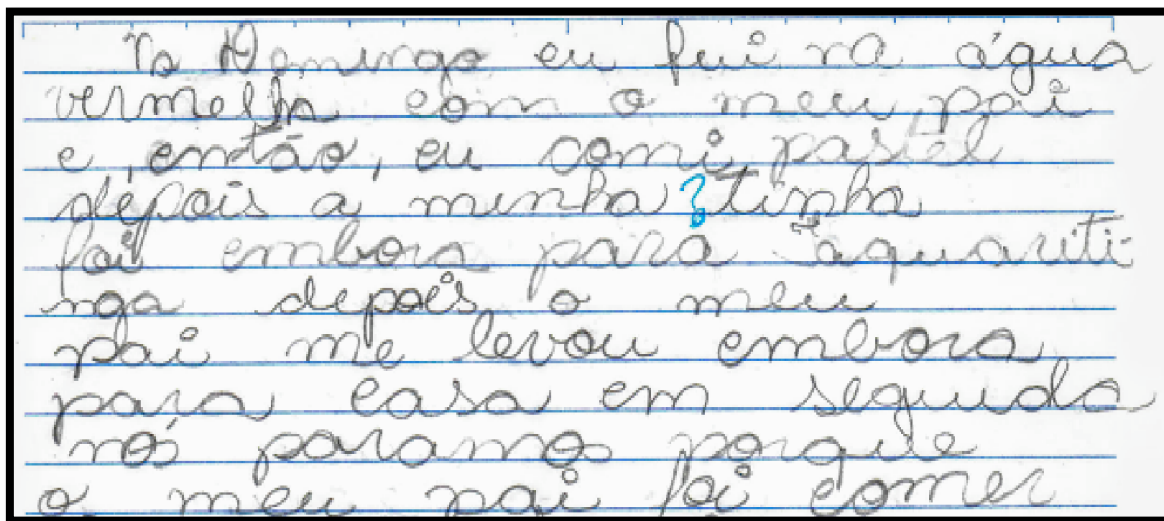 No Domingo eu fui na água
vermelha com o meu pai
e, então, eu comi pastel
depois a minha ? tinha
foi embora para taquariti-
nga depois o meu
pai me levou embora
para casa em seguida
nós paramos porque
o meu pai foi comer